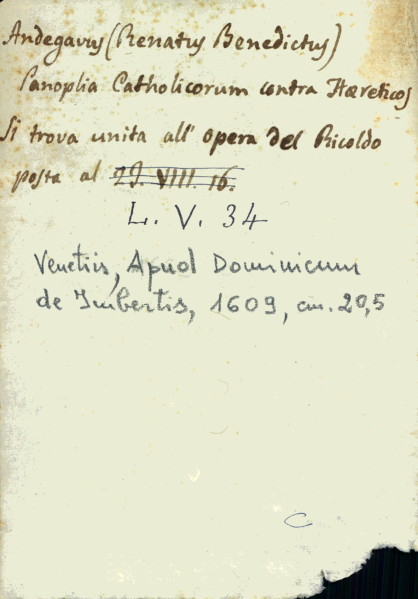 Andegavus (Renatus Benedictus)
Panoplia Catholicorum contra Hæreticos
Si trova unita all' opera del Ricoldo
posta al 29. VIII. 16.
L. V. 34
Venetiis, Apud Dominicum
de Imbertis, 1609, cm. 20,5
C